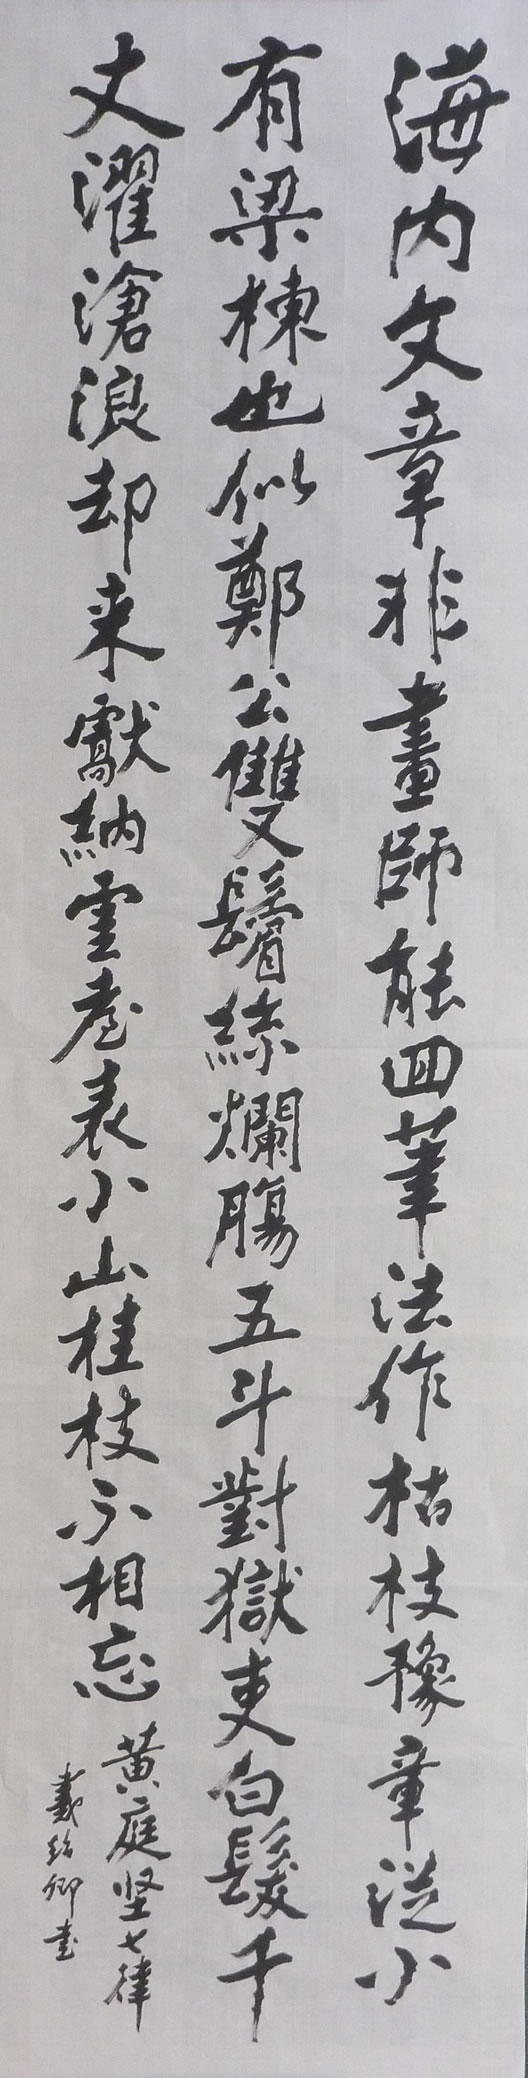 海内文章非畫師能回筆法作枯枝豫章從小
有梁棟也似鄭公雙鬢絲爛腸五斗對獄吏白髮千
丈濯滄浪却来獻納雲臺表小山桂枝不相忘
黄庭坚七律
戴绍卿书